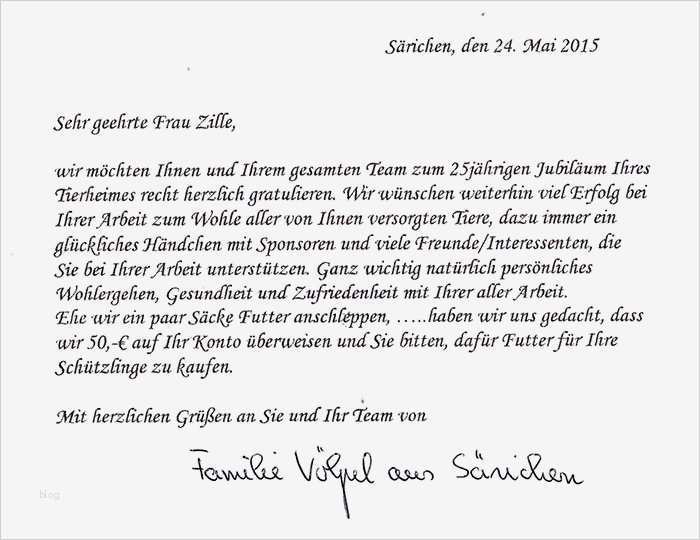 Särichen, den 24. Mai 2015
Sehr geehrte Frau Zille,
wir möchten Ihnen und Ihrem gesamten Team zum 25jährigen Jubiläum Ihres
Tierheimes recht herzlich gratulieren. Wir wünschen weiterhin viel Erfolg bei
Ihrer Arbeit zum Wohle aller von Ihnen versorgten Tiere, dazu immer ein
glückliches Händchen mit Sponsoren und viele Freunde/Interessenten, die
Sie bei Ihrer Arbeit unterstützen. Ganz wichtig natürlich persönliches
Wohlergehen, Gesundheit und Zufriedenheit mit Ihrer aller Arbeit.
Ehe wir ein paar Säcke Futter anschleppen, …..haben wir uns gedacht, dass
wir 50,-€ auf Ihr Konto überweisen und Sie bitten, dafür Futter für Ihre
Schützlinge zu kaufen.
Mit herzlichen Grüßen an Sie und Ihr Team von
Familie Völpel aus Särichen
blog